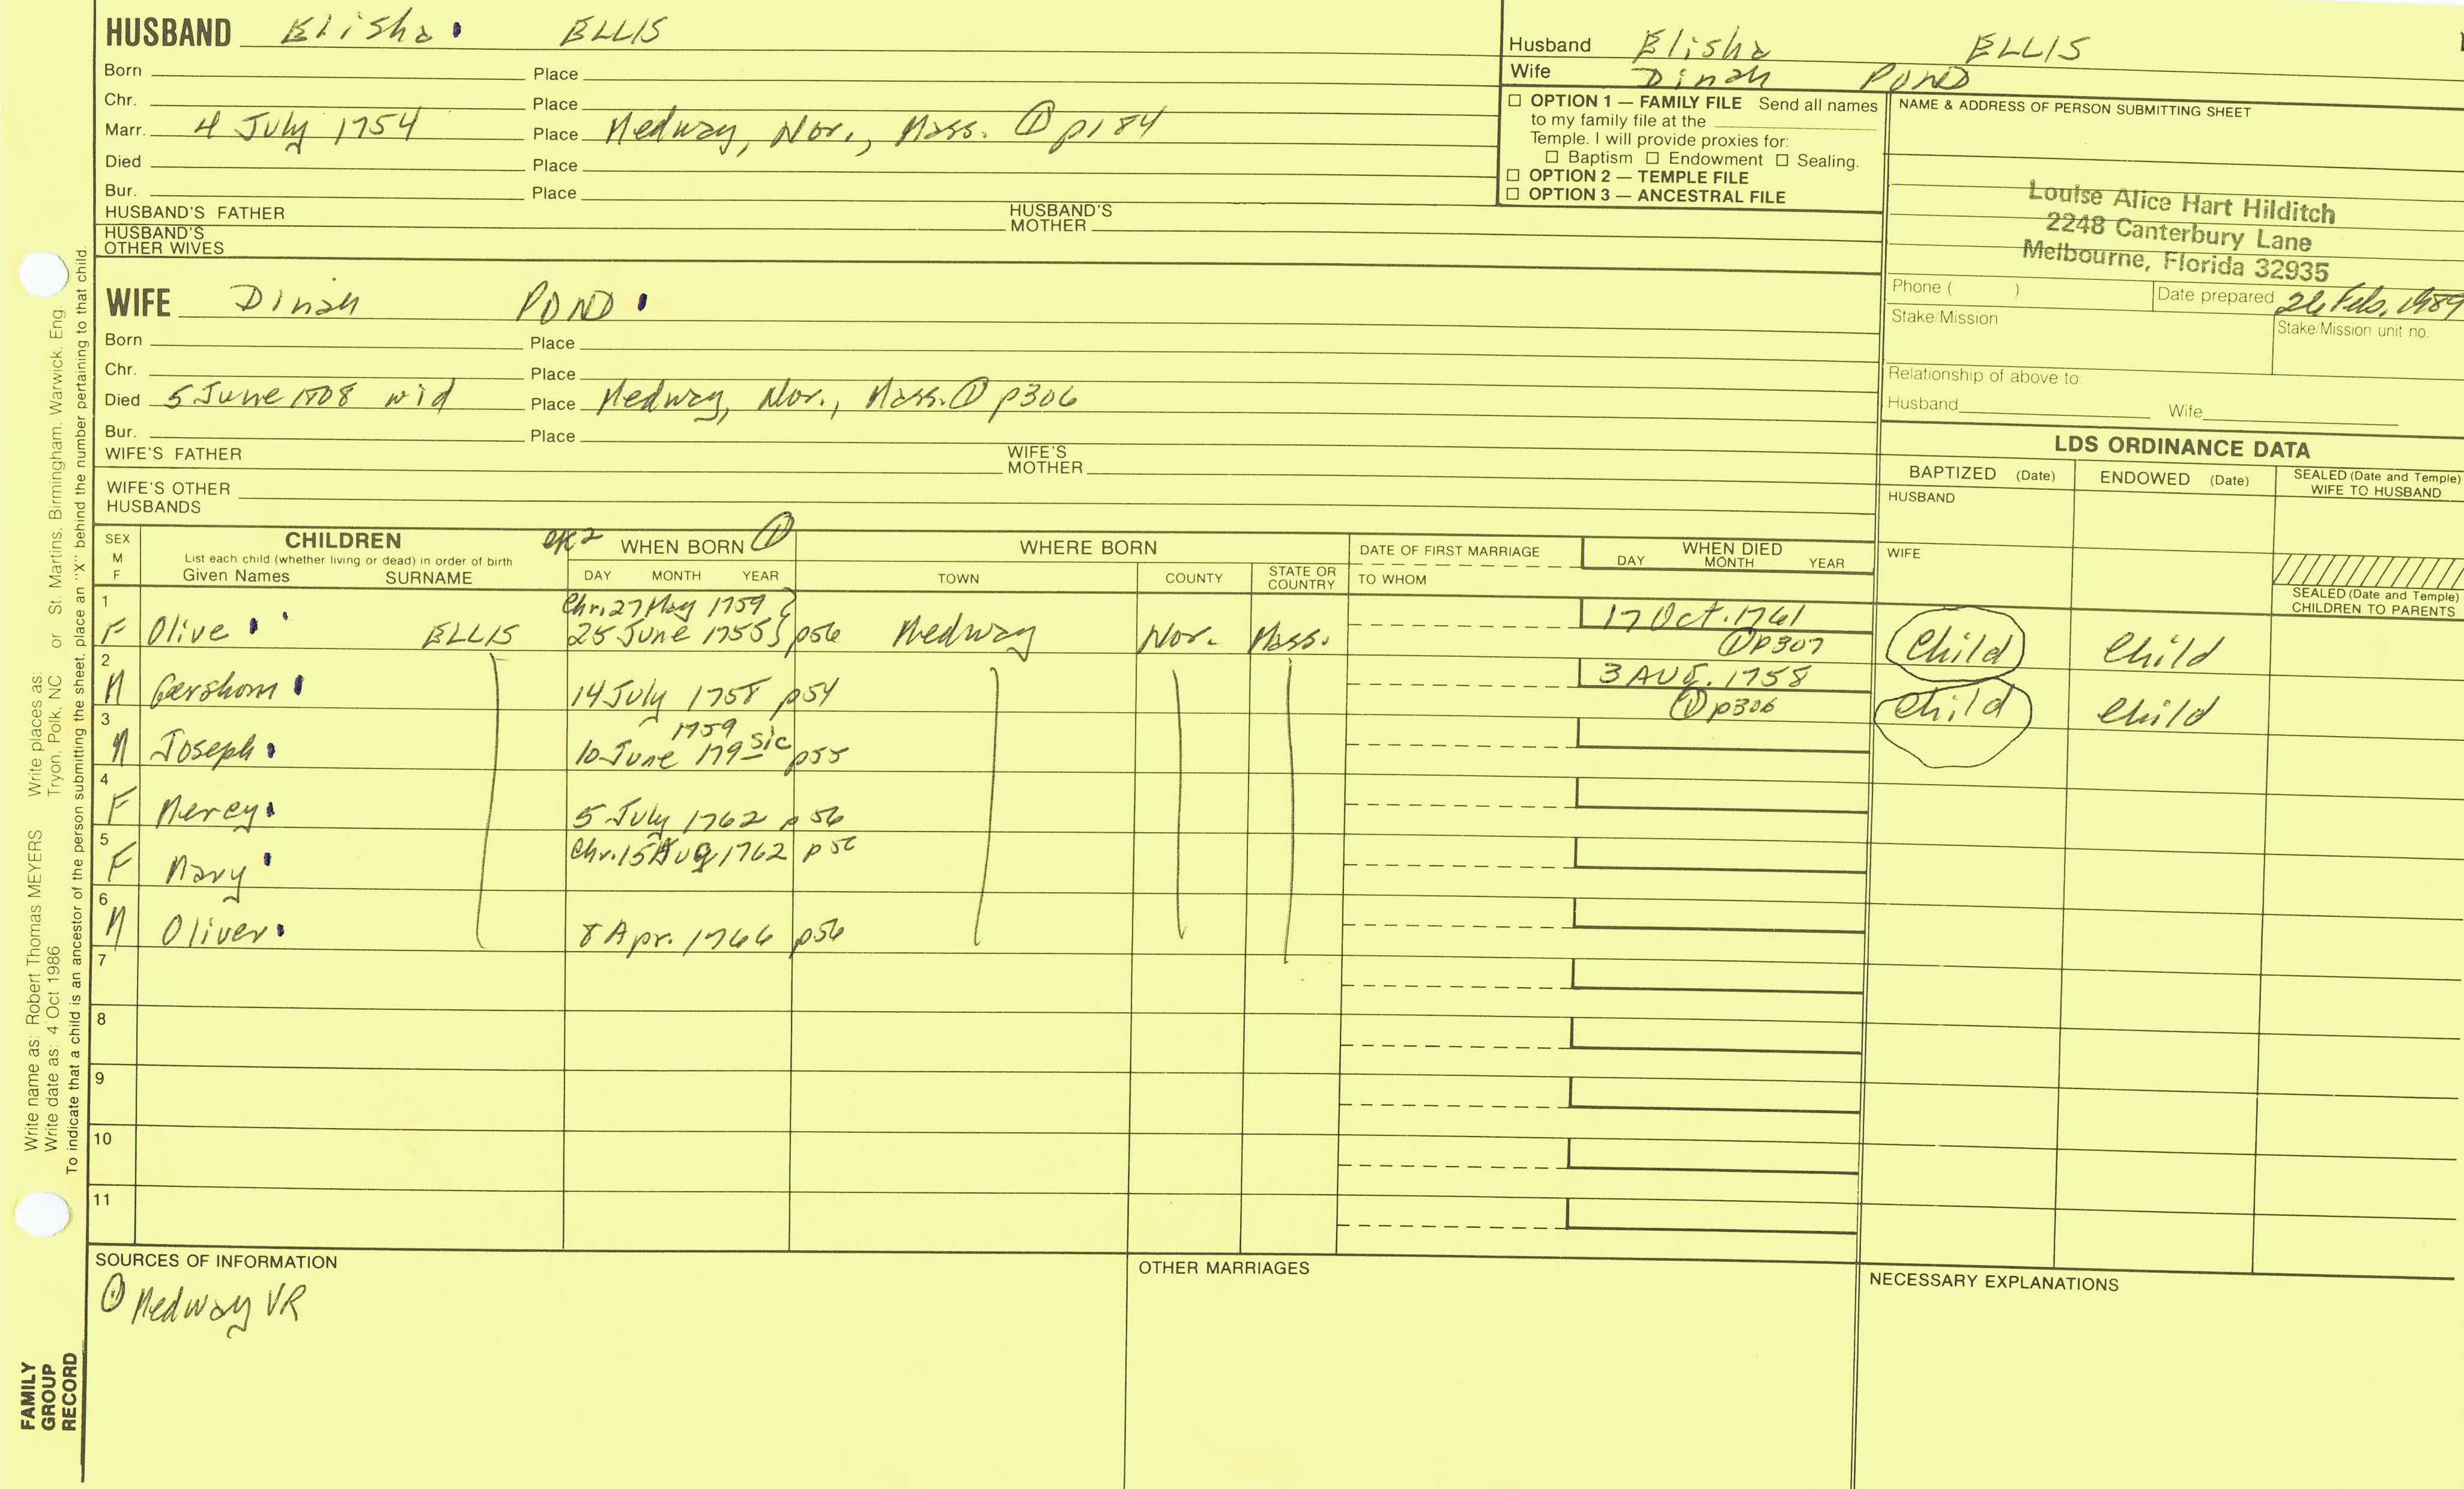 HUSBAND Elisha ELLIS
Born Place
Chr. Place
Marr. 4 July 1754 Place Medway, Nor., Mass. ① p184
Died Place
Bur. Place
HUSBAND'S FATHER HUSBAND'S MOTHER
HUSBAND'S OTHER WIVES
WIFE Dinah POND
Born Place
Chr. Place
Died 5 June 1808 wid Place Medway, Nor., Mass. ① p306
Bur. Place
WIFE'S FATHER WIFE'S MOTHER
WIFE'S OTHER HUSBANDS
Husband Elisha ELLIS
Wife Dinah POND
☐ OPTION 1 — FAMILY FILE Send all names
to my family file at the
Temple. I will provide proxies for:
☐ Baptism ☐ Endowment ☐ Sealing.
☐ OPTION 2 — TEMPLE FILE
☐ OPTION 3 — ANCESTRAL FILE
NAME & ADDRESS OF PERSON SUBMITTING SHEET
Louise Alice Hart Hilditch
2248 Canterbury Lane
Melbourne, Florida 32935
Phone ( ) Date prepared Feb, 1989
Stake/Mission Stake/Mission unit no.
Relationship of above to:
Husband Wife
LDS ORDINANCE DATA
BAPTIZED (Date) ENDOWED (Date) SEALED (Date and Temple) WIFE TO HUSBAND
HUSBAND
WIFE
SEALED (Date and Temple) CHILDREN TO PARENTS
SEX M F
CHILDREN
List each child (whether living or dead) in order of birth
Given Names SURNAME
WHEN BORN ①
DAY MONTH YEAR
WHERE BORN
TOWN COUNTY STATE OR COUNTRY
DATE OF FIRST MARRIAGE
TO WHOM
WHEN DIED
DAY MONTH YEAR
1 Chr. 27 May 1759 17 Oct. 1761
F Olive ELLIS 25 June 1755 p56 Medway Nor. Mass. ① p307 Child Child
2 3 AUG. 1758
M Gershom 14 July 1758 p54 ① p306 Child Child
3 1759
M Joseph 10 June 179- sic p55
4
F Mercy 5 July 1762 p56
5 Chr. 15 Aug 1762 p56
F Mary
6
M Oliver 8 Apr. 1766 p56
7
8
9
10
11
SOURCES OF INFORMATION
① Medway VR
OTHER MARRIAGES
NECESSARY EXPLANATIONS
Write name as: Robert Thomas MEYERS Write places as: Tryon, Polk, NC or St. Martins, Birmingham, Warwick, Eng.
Write date as: 4 Oct 1986
To indicate that a child is an ancestor of the person submitting the sheet, place an "X" behind the number pertaining to that child.
FAMILY
GROUP
RECORD